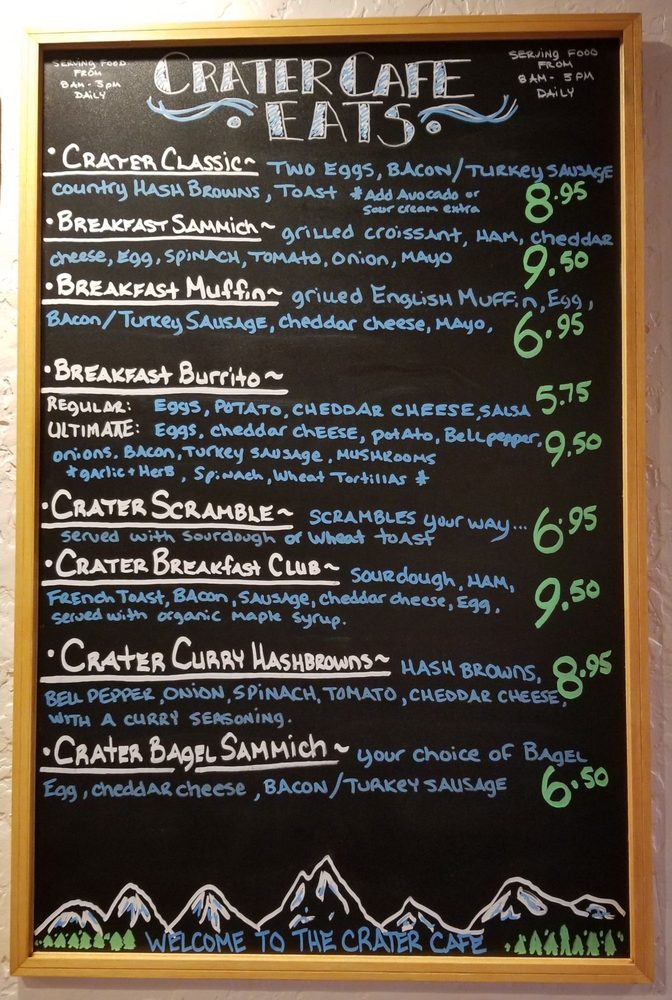 SERVING FOOD
FROM
8AM - 3PM
DAILY
CRATER CAFE
• EATS •
SERVING FOOD
FROM
8AM - 3PM
DAILY
• CRATER CLASSIC ~ TWO EGGS, BACON/TURKEY SAUSAGE
COUNTRY HASH BROWNS, TOAST * Add Avocado or
sour cream extra
8.95
• BREAKFAST SAMMICH ~ grilled croissant, HAM, cheddar
cheese, Egg, SPINACH, TOMATO, Onion, MAYO
9.50
• BREAKFAST MUFFIN ~ grilled ENGLISH MUFFIN, Egg,
BACON/TURKEY SAUSAGE, cheddar cheese, MAYO,
6.95
• BREAKFAST Burrito ~
REGULAR: Eggs, POTATO, CHEDDAR CHEESE, SALSA 5.75
ULTIMATE: Eggs, cheddar cheese, potato, Bell pepper,
onions, BACON, Turkey SAUSAGE, MUSHROOMS
9.50
*garlic + Herb, Spinach, Wheat Tortillas *
• CRATER SCRAMBLE ~ SCRAMBLES your way...
served with sourdough or wheat toast
6.95
• CRATER BREAKFAST CLUB ~ Sourdough, HAM,
FRENCH TOAST, BACON, SAUSAGE, cheddar cheese, Egg,
served with organic maple syrup.
9.50
• CRATER CURRY HASHBROWNS ~ HASH BROWNS,
8.95
BELL PEPPER, ONION, SPINACH, TOMATO, CHEDDAR CHEESE,
WITH A CURRY SEASONING.
• CRATER BAGEL SAMMICH ~ your choice of BAGEL
Egg, cheddar cheese, BACON/TURKEY SAUSAGE
6.50
WELCOME TO THE CRATER CAFE